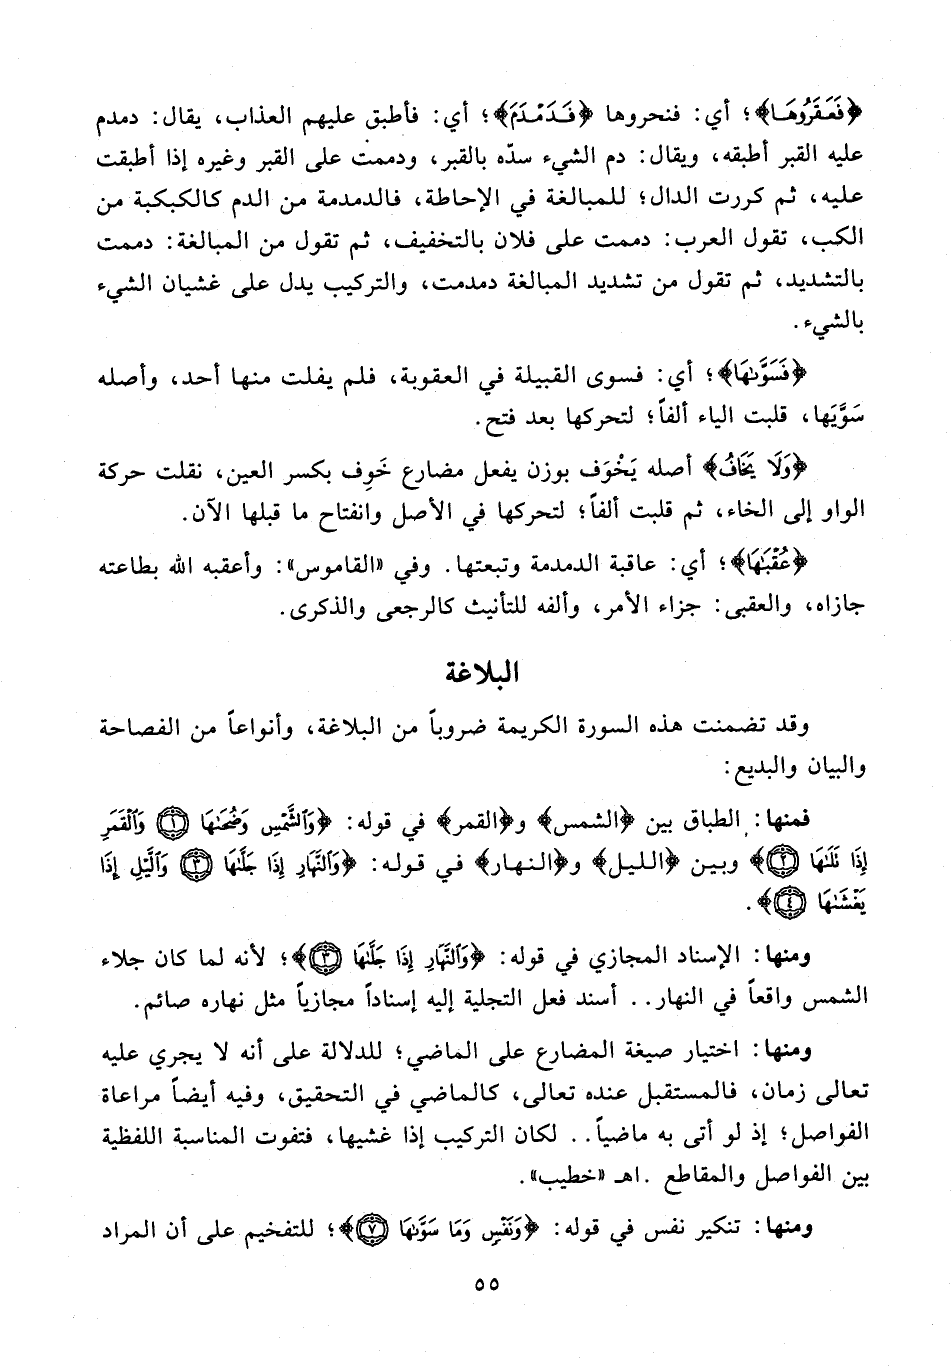 ﴿فَعَقَرُوهَا﴾؛ أي: فنحروها ﴿فَدَمْدَمَ﴾؛ أي: فأطبق عليهم العذاب، يقال: دمدم
عليه القبر أطبقه، ويقال: دم الشيء سدّه بالقبر، ودممت على القبر وغيره إذا أطبقت
عليه، ثم كررت الدال؛ للمبالغة في الإحاطة، فالدمدمة من الدم كالكبكبة من
الكب، تقول العرب: دممت على فلان بالتخفيف، ثم تقول من المبالغة: دممت
بالتشديد، ثم تقول من تشديد المبالغة دمدمت، والتركيب يدل على غشيان الشيء
بالشيء.
﴿فَسَوَّىٰهَا﴾؛ أي: فسوى القبيلة في العقوبة، فلم يفلت منها أحد، وأصله
سَوَّيَها، قلبت الياء ألفاً؛ لتحركها بعد فتح.
﴿وَلَا يَخَافُ﴾ أصله يَخْوَف بوزن يفعل مضارع خَوِف بكسر العين، نقلت حركة
الواو إلى الخاء، ثم قلبت ألفاً؛ لتحركها في الأصل وانفتاح ما قبلها الآن.
﴿عُقْبَٰهَا﴾؛ أي: عاقبة الدمدمة وتبعتها. وفي «القاموس»: وأعقبه الله بطاعته
جازاه، والعقبى: جزاء الأمر، وألفه للتأنيث كالرجعى والذكرى.
البلاغة
وقد تضمنت هذه السورة الكريمة ضروباً من البلاغة، وأنواعاً من الفصاحة
والبيان والبديع:
فمنها: الطباق بين ﴿الشمس﴾ و﴿القمر﴾ في قوله: ﴿وَٱلشَّمْسِ وَضُحَىٰهَا ١ وَٱلْقَمَرِ
إِذَا تَلَىٰهَا ٢﴾ وبين ﴿الليل﴾ و﴿النهار﴾ في قوله: ﴿وَٱلنَّهَارِ إِذَا جَلَّىٰهَا ٣ وَٱلَّيْلِ إِذَا
يَغْشَىٰهَا ٤﴾.
ومنها: الإسناد المجازي في قوله: ﴿وَٱلنَّهَارِ إِذَا جَلَّىٰهَا ٣﴾؛ لأنه لما كان جلاء
الشمس واقعاً في النهار.. أسند فعل التجلية إليه إسناداً مجازياً مثل نهاره صائم.
ومنها: اختيار صيغة المضارع على الماضي؛ للدلالة على أنه لا يجري عليه
تعالى زمان، فالمستقبل عنده تعالى، كالماضي في التحقيق، وفيه أيضاً مراعاة
الفواصل؛ إذ لو أتى به ماضياً.. لكان التركيب إذا غشيها، فتفوت المناسبة اللفظية
بين الفواصل والمقاطع .اهـ «خطيب».
ومنها: تنكير نفس في قوله: ﴿وَنَفْسٍ وَمَا سَوَّىٰهَا ٧﴾؛ للتفخيم على أن المراد
٥٥